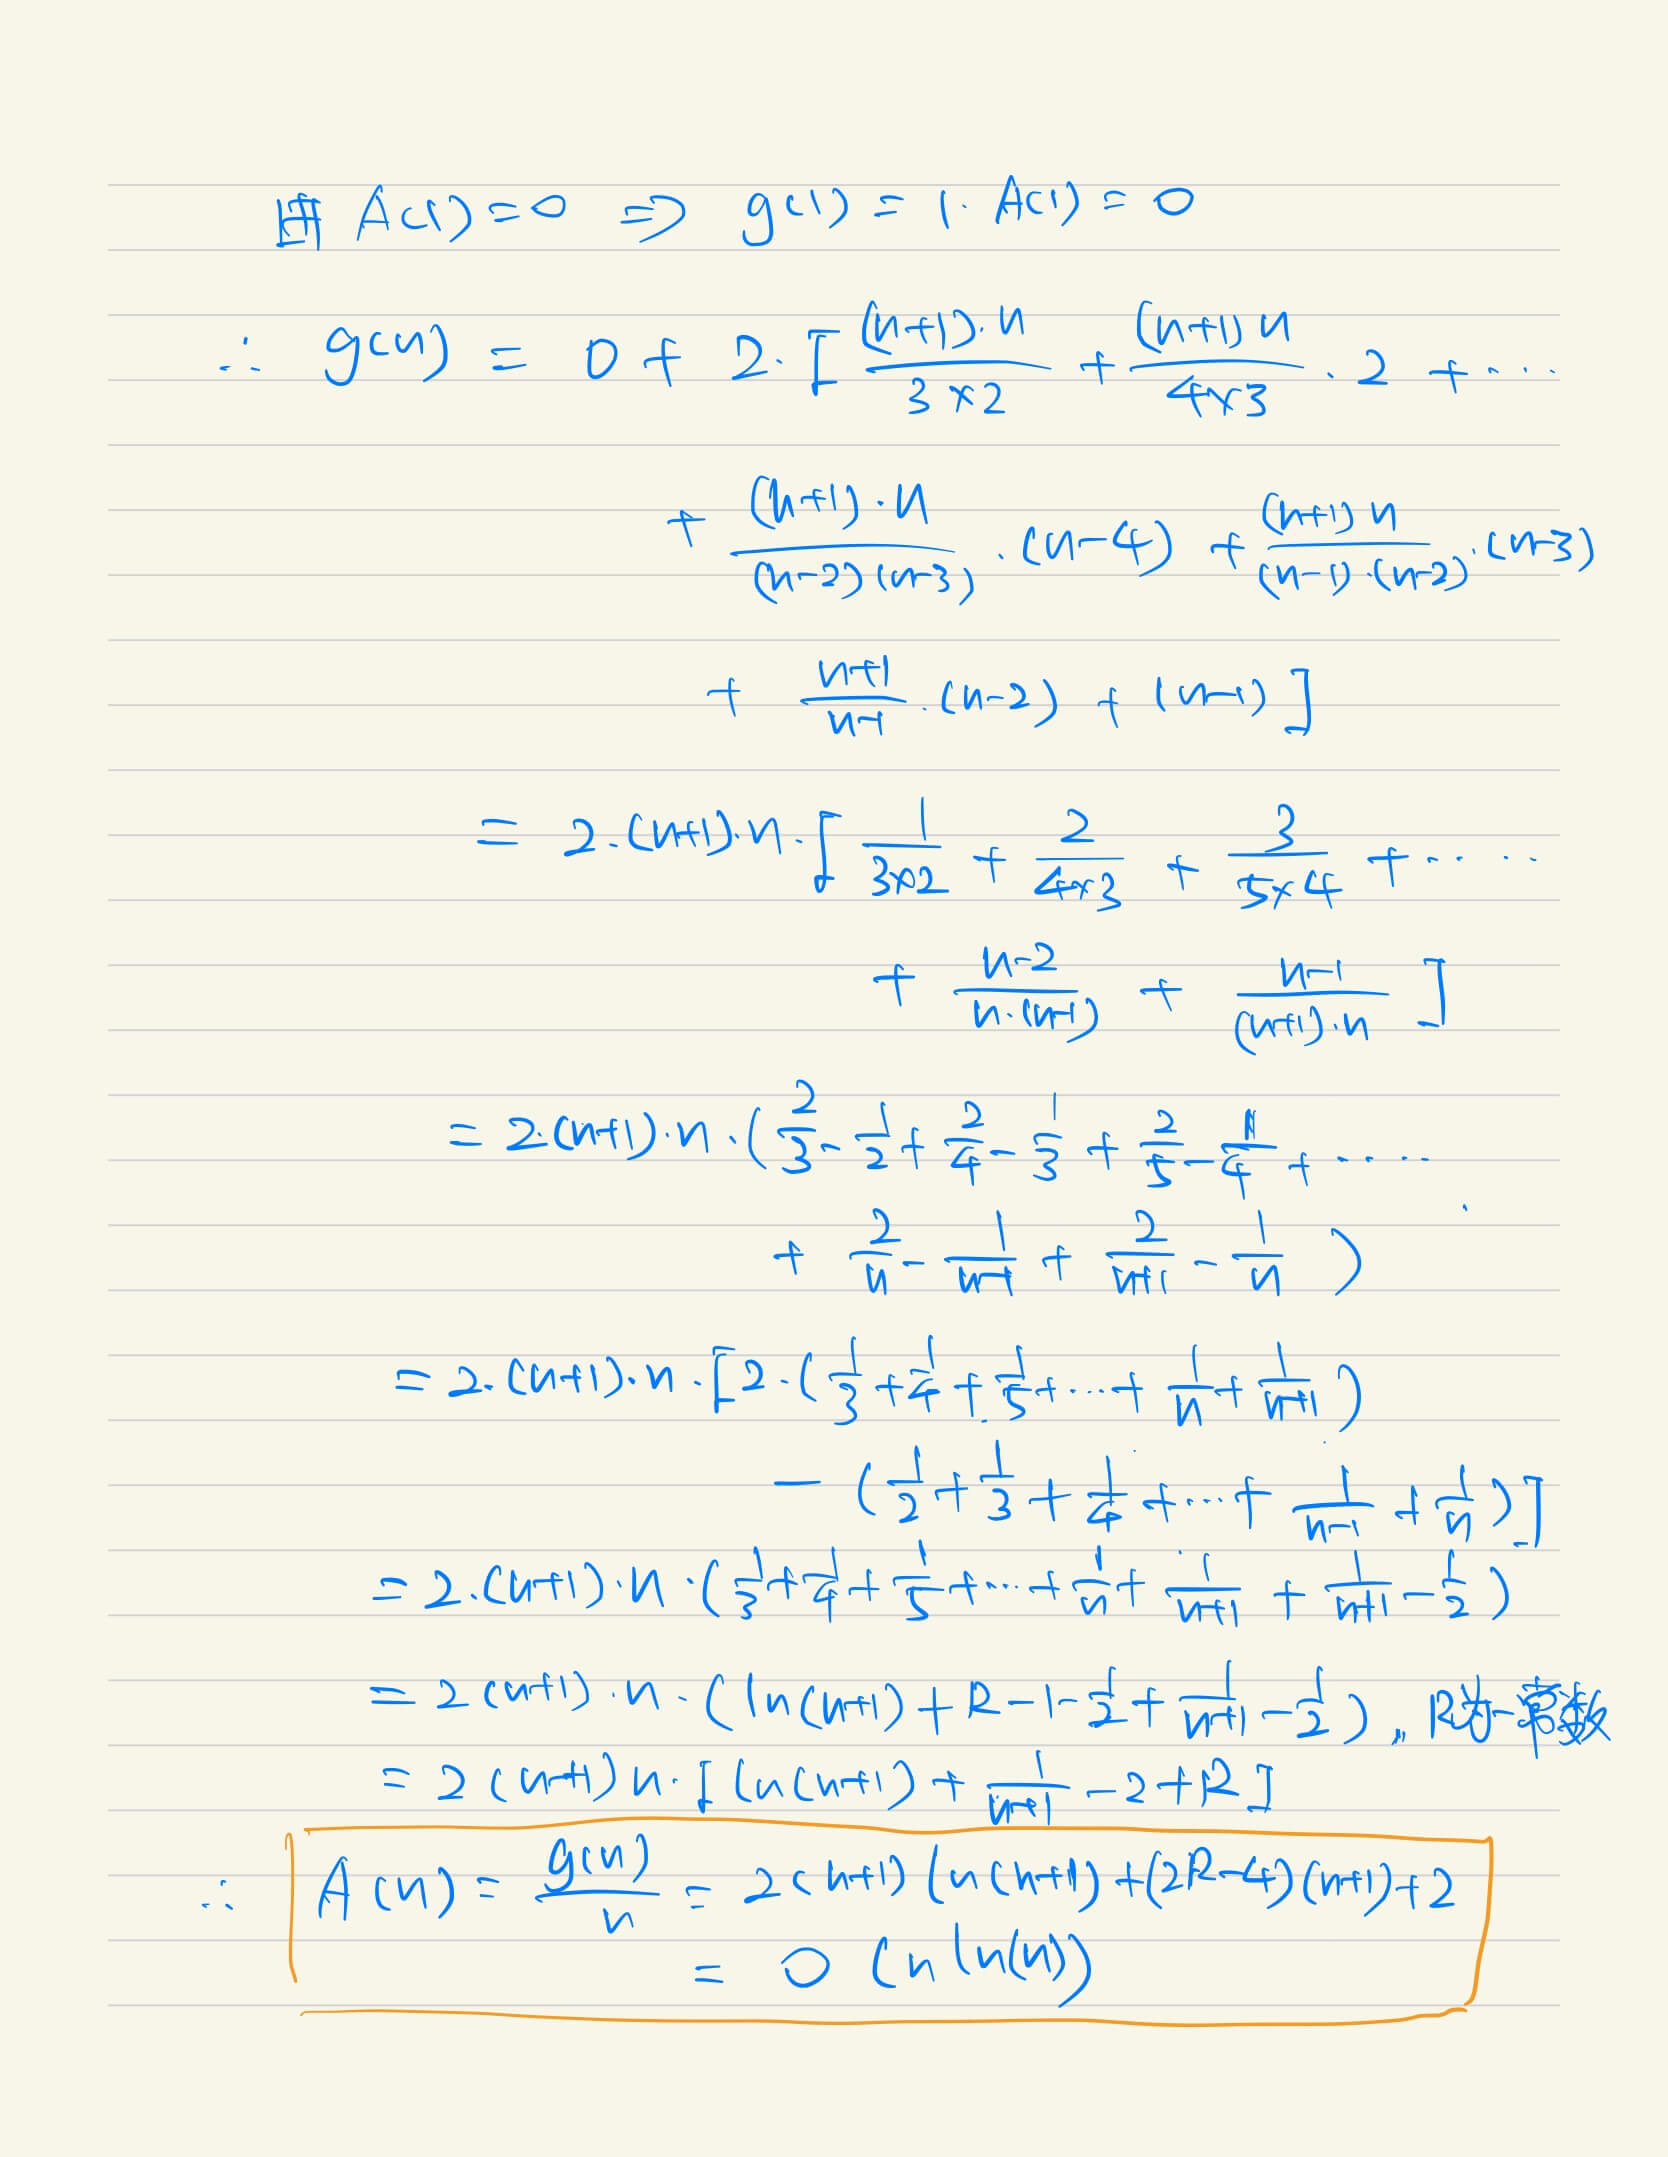 由 A(1)=0 ⇒ g(1) = 1·A(1) = 0
∴ g(n) = 0 + 2·[ (n+1)·n/(3×2) + (n+1)n/(4×3) · 2 + ····
+ (n+1)·n/((n-2)(n-3)) · (n-4) + (n+1)n/((n-1)·(n-2)) · (n-3)
+ (n+1)/(n-1) · (n-2) + (n-1) ]
= 2·(n+1)·n·[ 1/(3×2) + 2/(4×3) + 3/(5×4) + ·····
+ (n-2)/(n·(n-1)) + (n-1)/((n+1)·n) ]
= 2·(n+1)·n·( 2/3 - 1/2 + 2/4 - 1/3 + 2/5 - 1/4 + ·····
+ 2/n - 1/(n-1) + 2/(n+1) - 1/n )
= 2·(n+1)·n·[2·( 1/3 + 1/4 + 1/5 + ··· + 1/n + 1/(n+1) )
- ( 1/2 + 1/3 + 1/4 + ··· + 1/(n-1) + 1/n )]
= 2·(n+1)·n·( 1/3 + 1/4 + 1/5 + ··· + 1/n + 1/(n+1) + 1/(n+1) - 1/2 )
= 2(n+1)·n·( ln(n+1) + R - 1 - 1/2 + 1/(n+1) - 1/2 ),, R为一常数
= 2(n+1)n·[ ln(n+1) + 1/(n+1) - 2 + R ]
∴ A(n) = g(n)/n = 2(n+1) ln(n+1) + (2R-4)(n+1) + 2
= O(n ln(n))